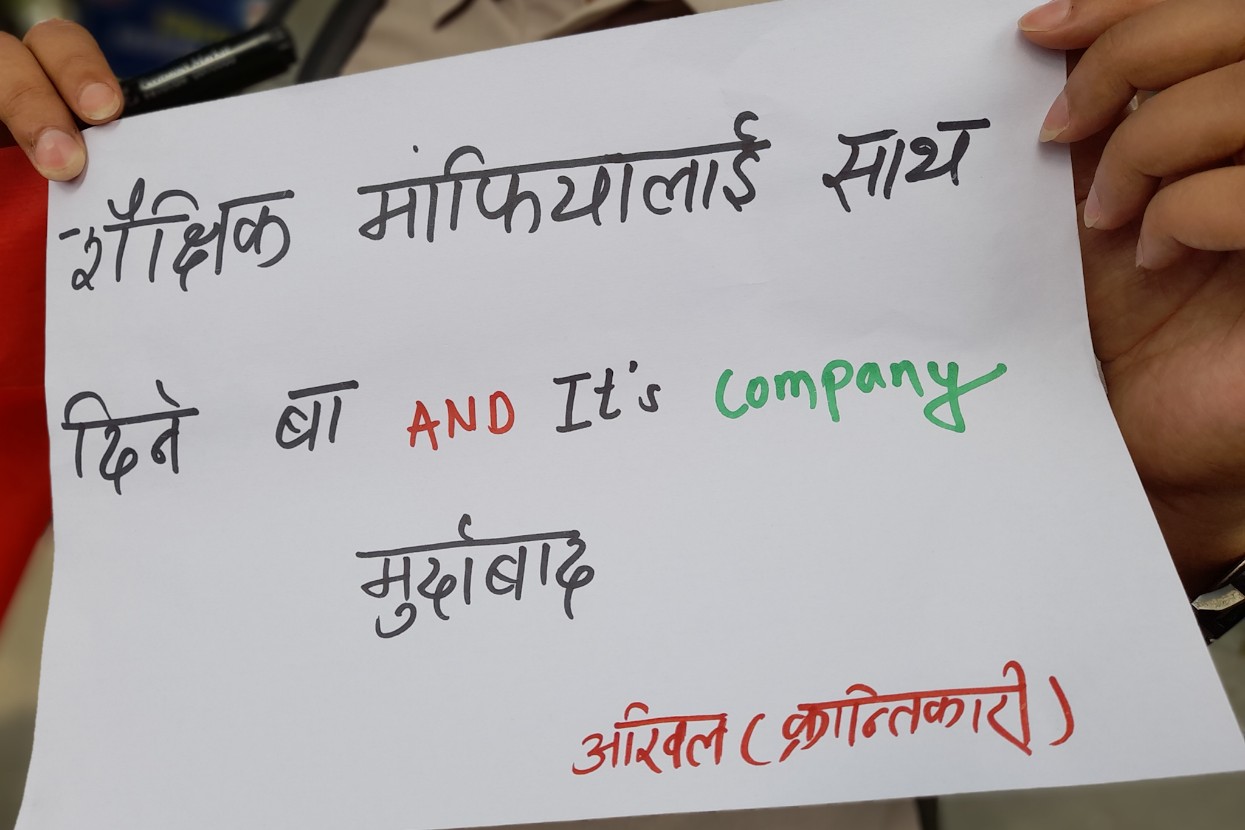 शैक्षिक मांफियालाई साथ
दिने बा AND It's company
मुर्दाबाद
अखिल (क्रान्तिकारी)